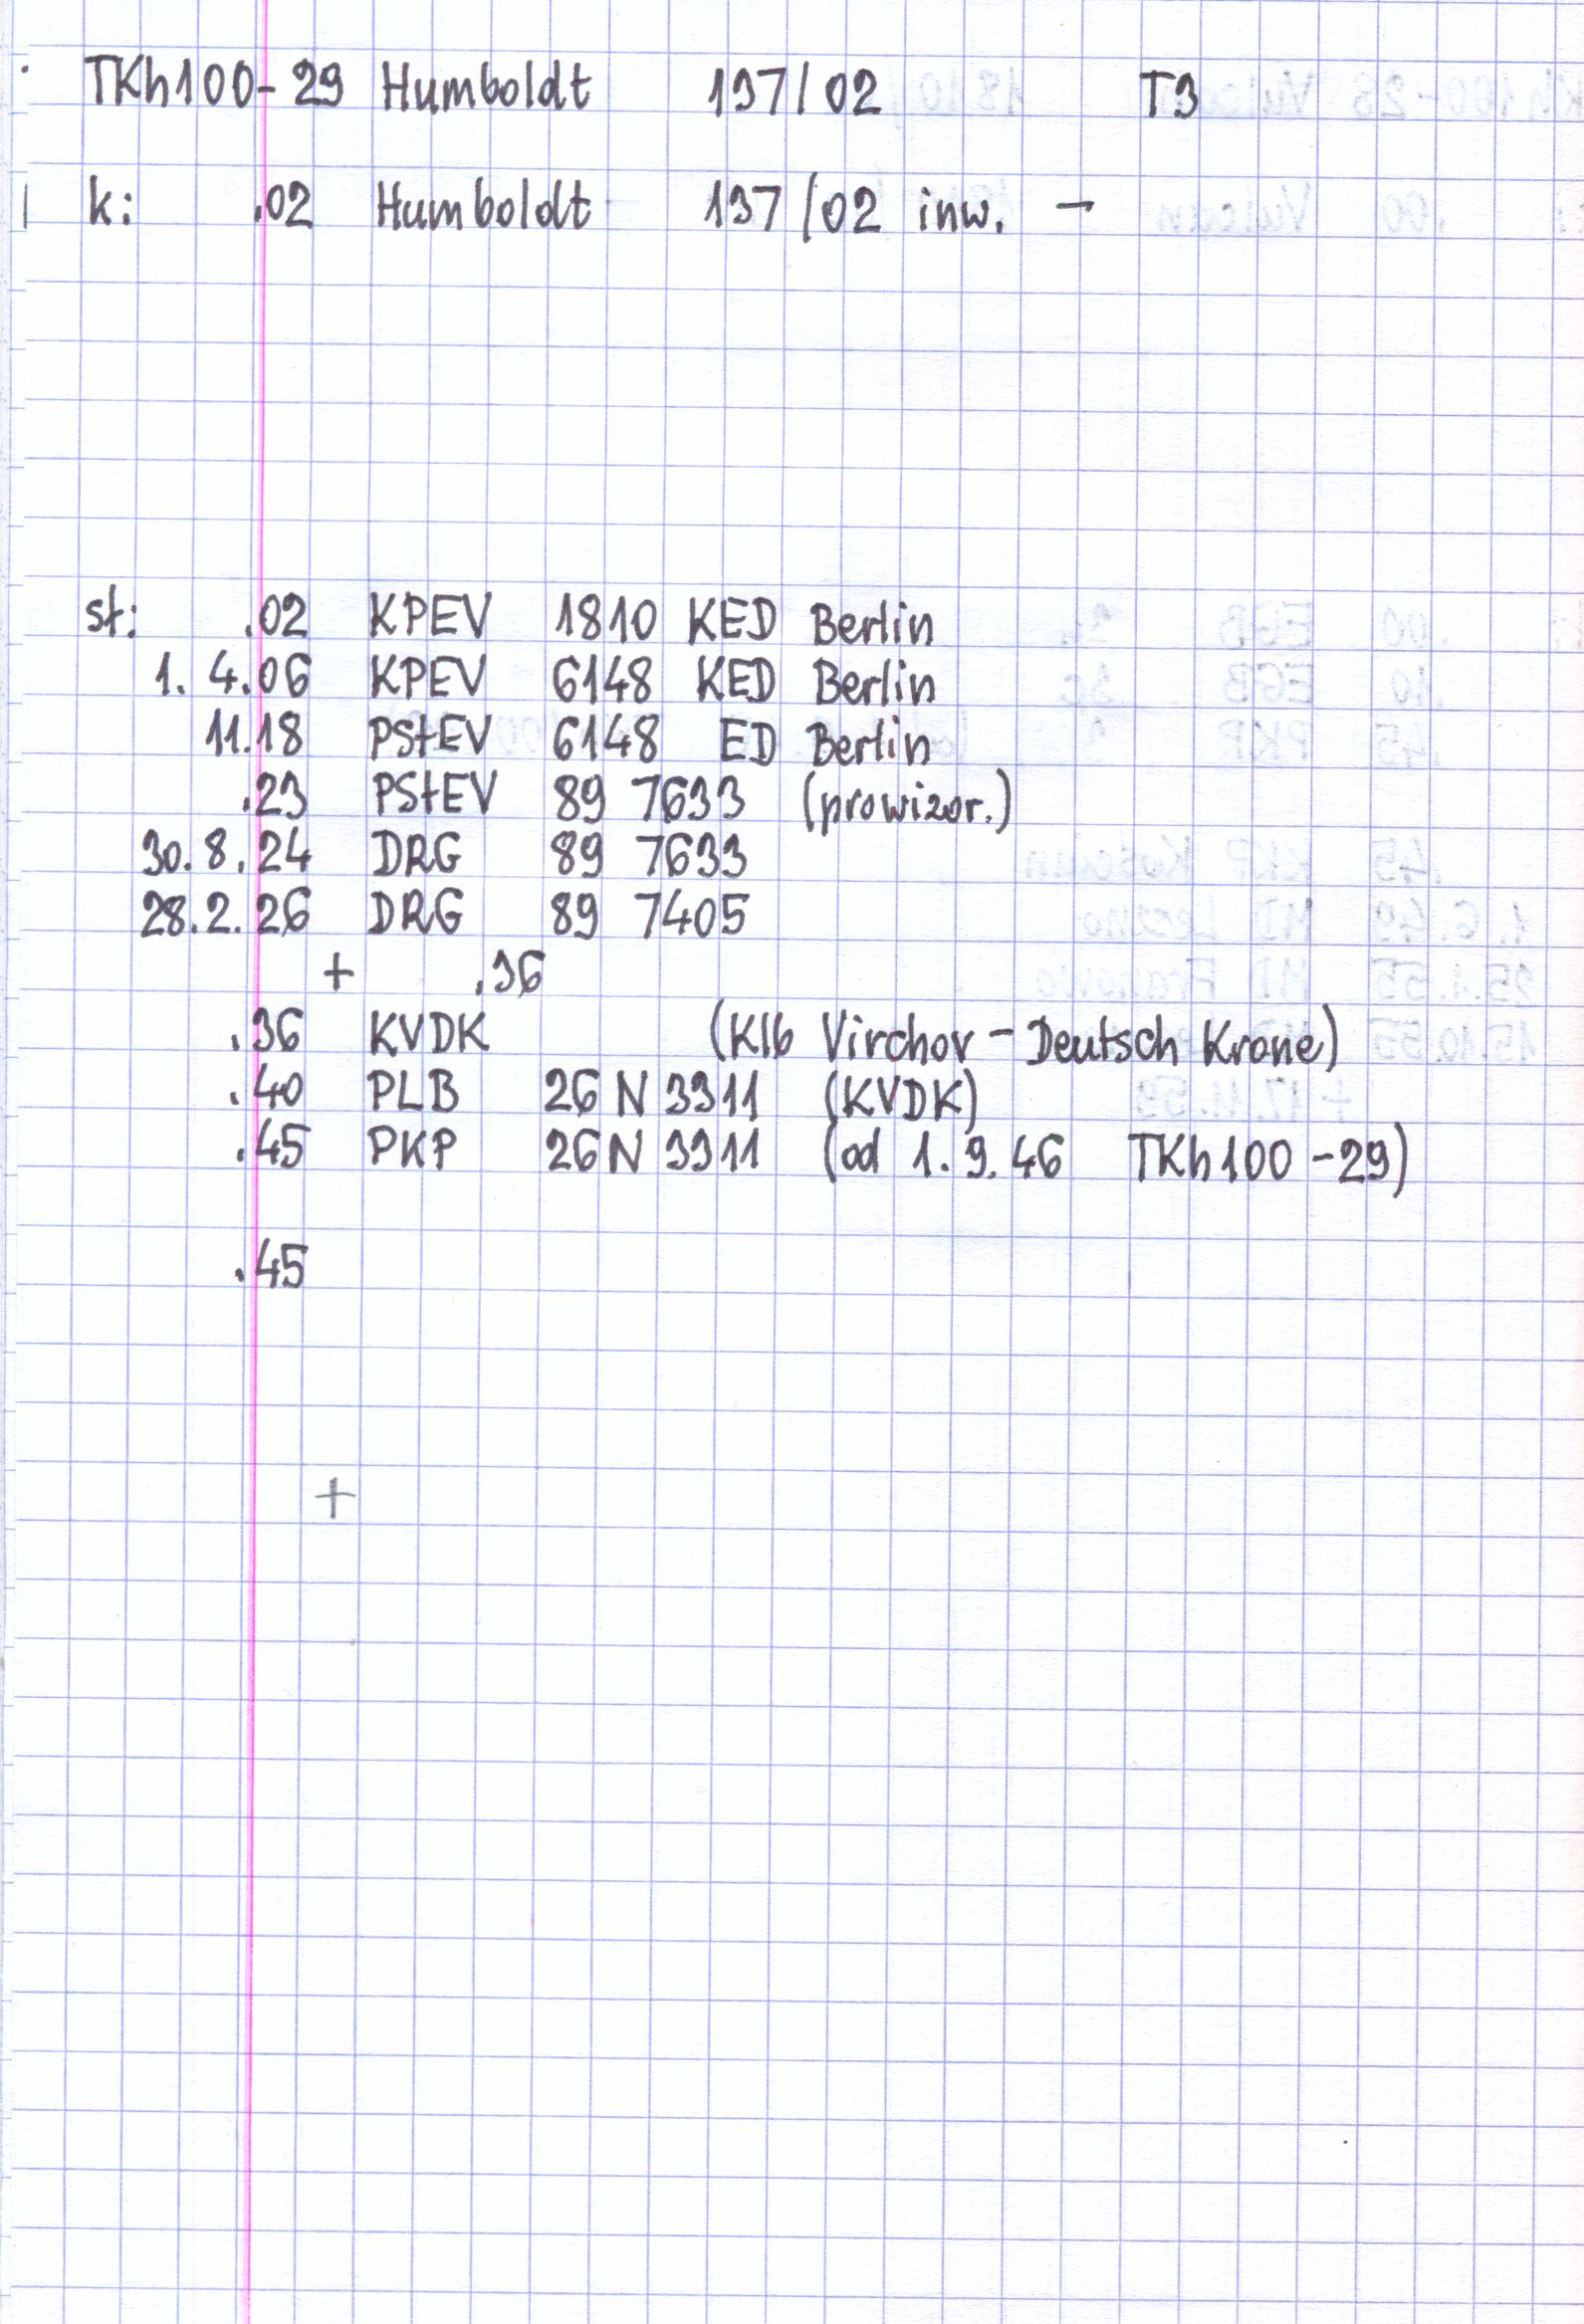 TKh100-29 Humboldt 137/02 T3
k: .02 Humboldt 137/02 inw. -
st: .02 KPEV 1810 KED Berlin
1. 4.06 KPEV 6148 KED Berlin
11.18 PStEV 6148 ED Berlin
.23 PStEV 89 7633 (prowizor.)
30.8.24 DRG 89 7633
28.2.26 DRG 89 7405
+ .36
.36 KVDK (Klb Virchov - Deutsch Krone)
.40 PLB 26 N 3311 (KVDK)
.45 PKP 26N 3311 (od 1.9.46 TKh100-29)
.45
+